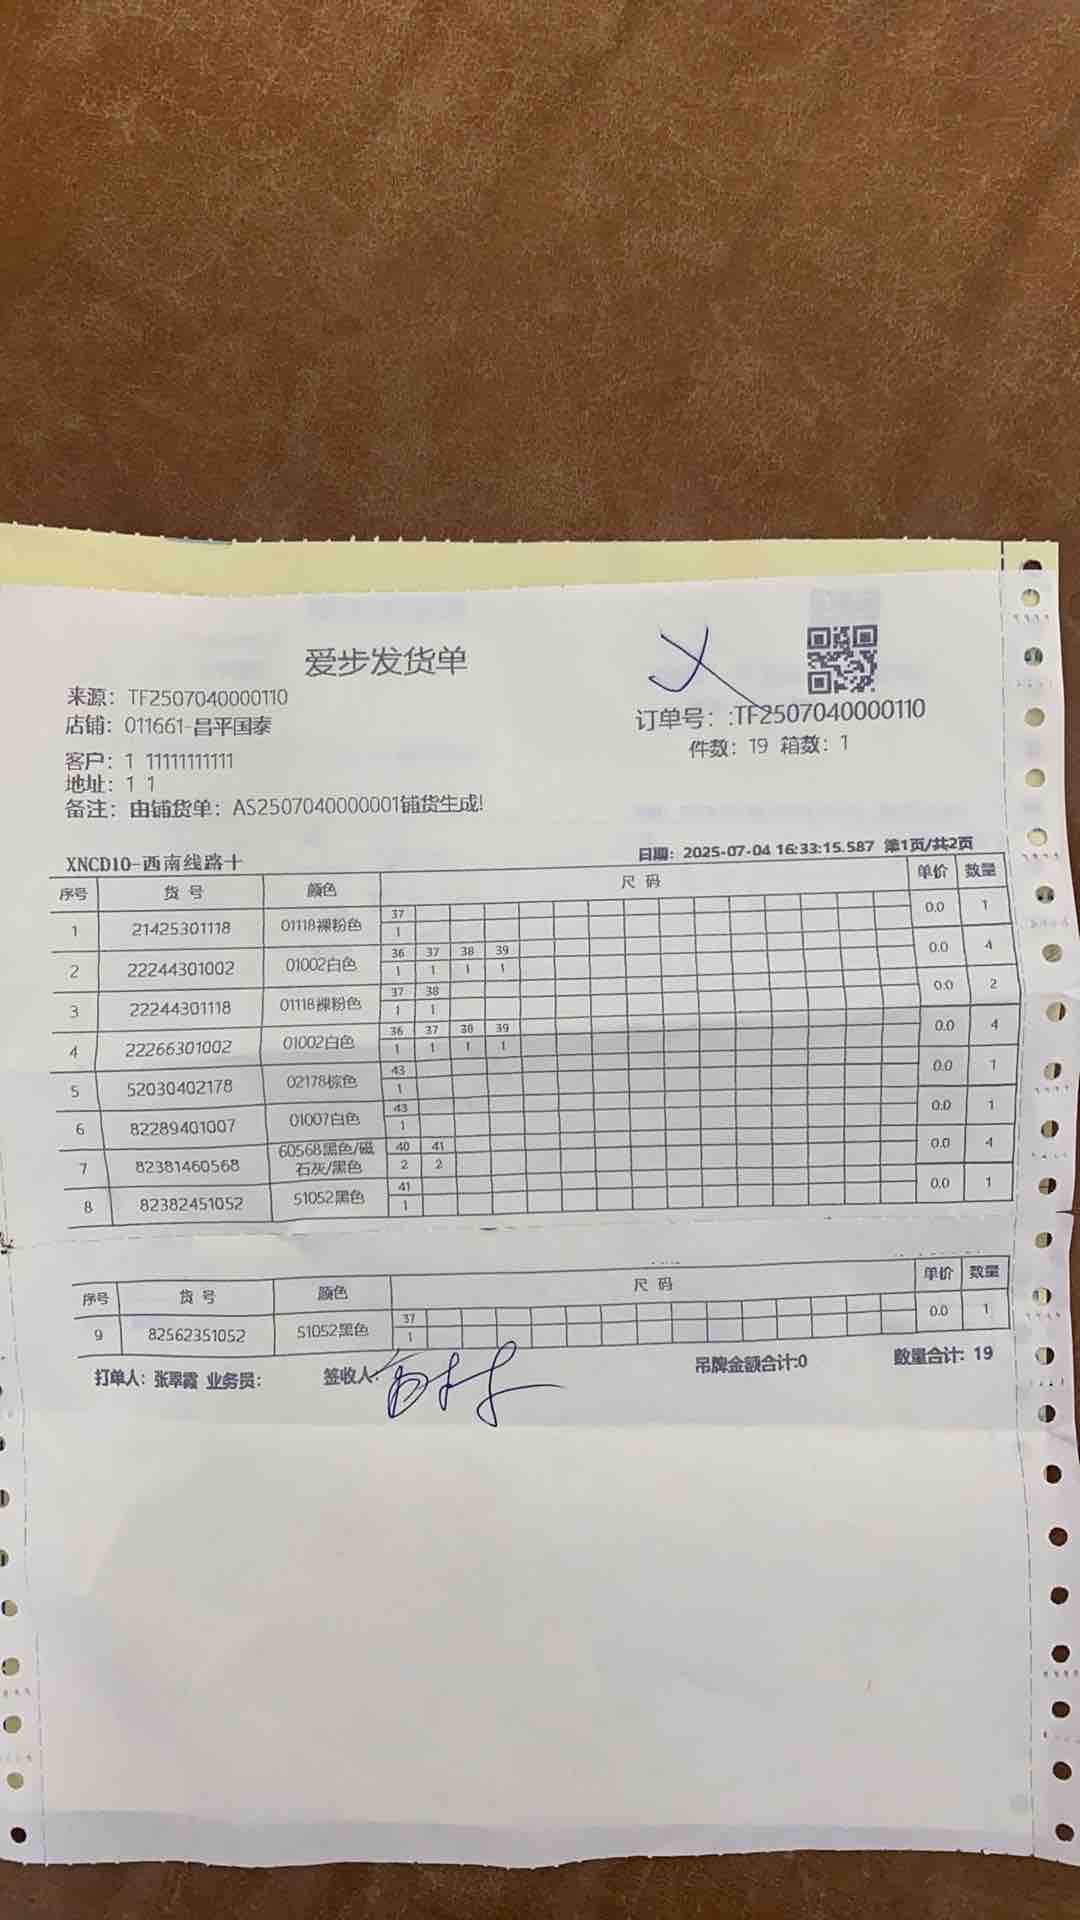 爱步发货单
来源: TF2507040000110
店铺: 011661-昌平国泰
订单号: :TF2507040000110
件数: 19 箱数: 1
客户: 1 11111111111
地址: 1 1
备注: 由铺货单: AS2507040000001铺货生成!
XNCD10-西南线路十
日期: 2025-07-04 16:33:15.587 第1页/共2页
序号 货号 颜色 尺码 单价 数量
37
1 21425301118 01118裸粉色 1 0.0 1
36 37 38 39
2 22244301002 01002白色 1 1 1 1 0.0 4
37 38
3 22244301118 01118裸粉色 1 1 0.0 2
36 37 38 39
4 22266301002 01002白色 1 1 1 1 0.0 4
43
5 52030402178 02178棕色 1 0.0 1
43
6 82289401007 01007白色 1 0.0 1
60568黑色/磁 40 41
7 82381460568 石灰/黑色 2 2 0.0 4
41
8 82382451052 51052黑色 1 0.0 1
序号 货号 颜色 尺码 单价 数量
37
9 82562351052 51052黑色 1 0.0 1
打单人: 张翠霞 业务员: 签收人: 吊牌金额合计:0 数量合计: 19